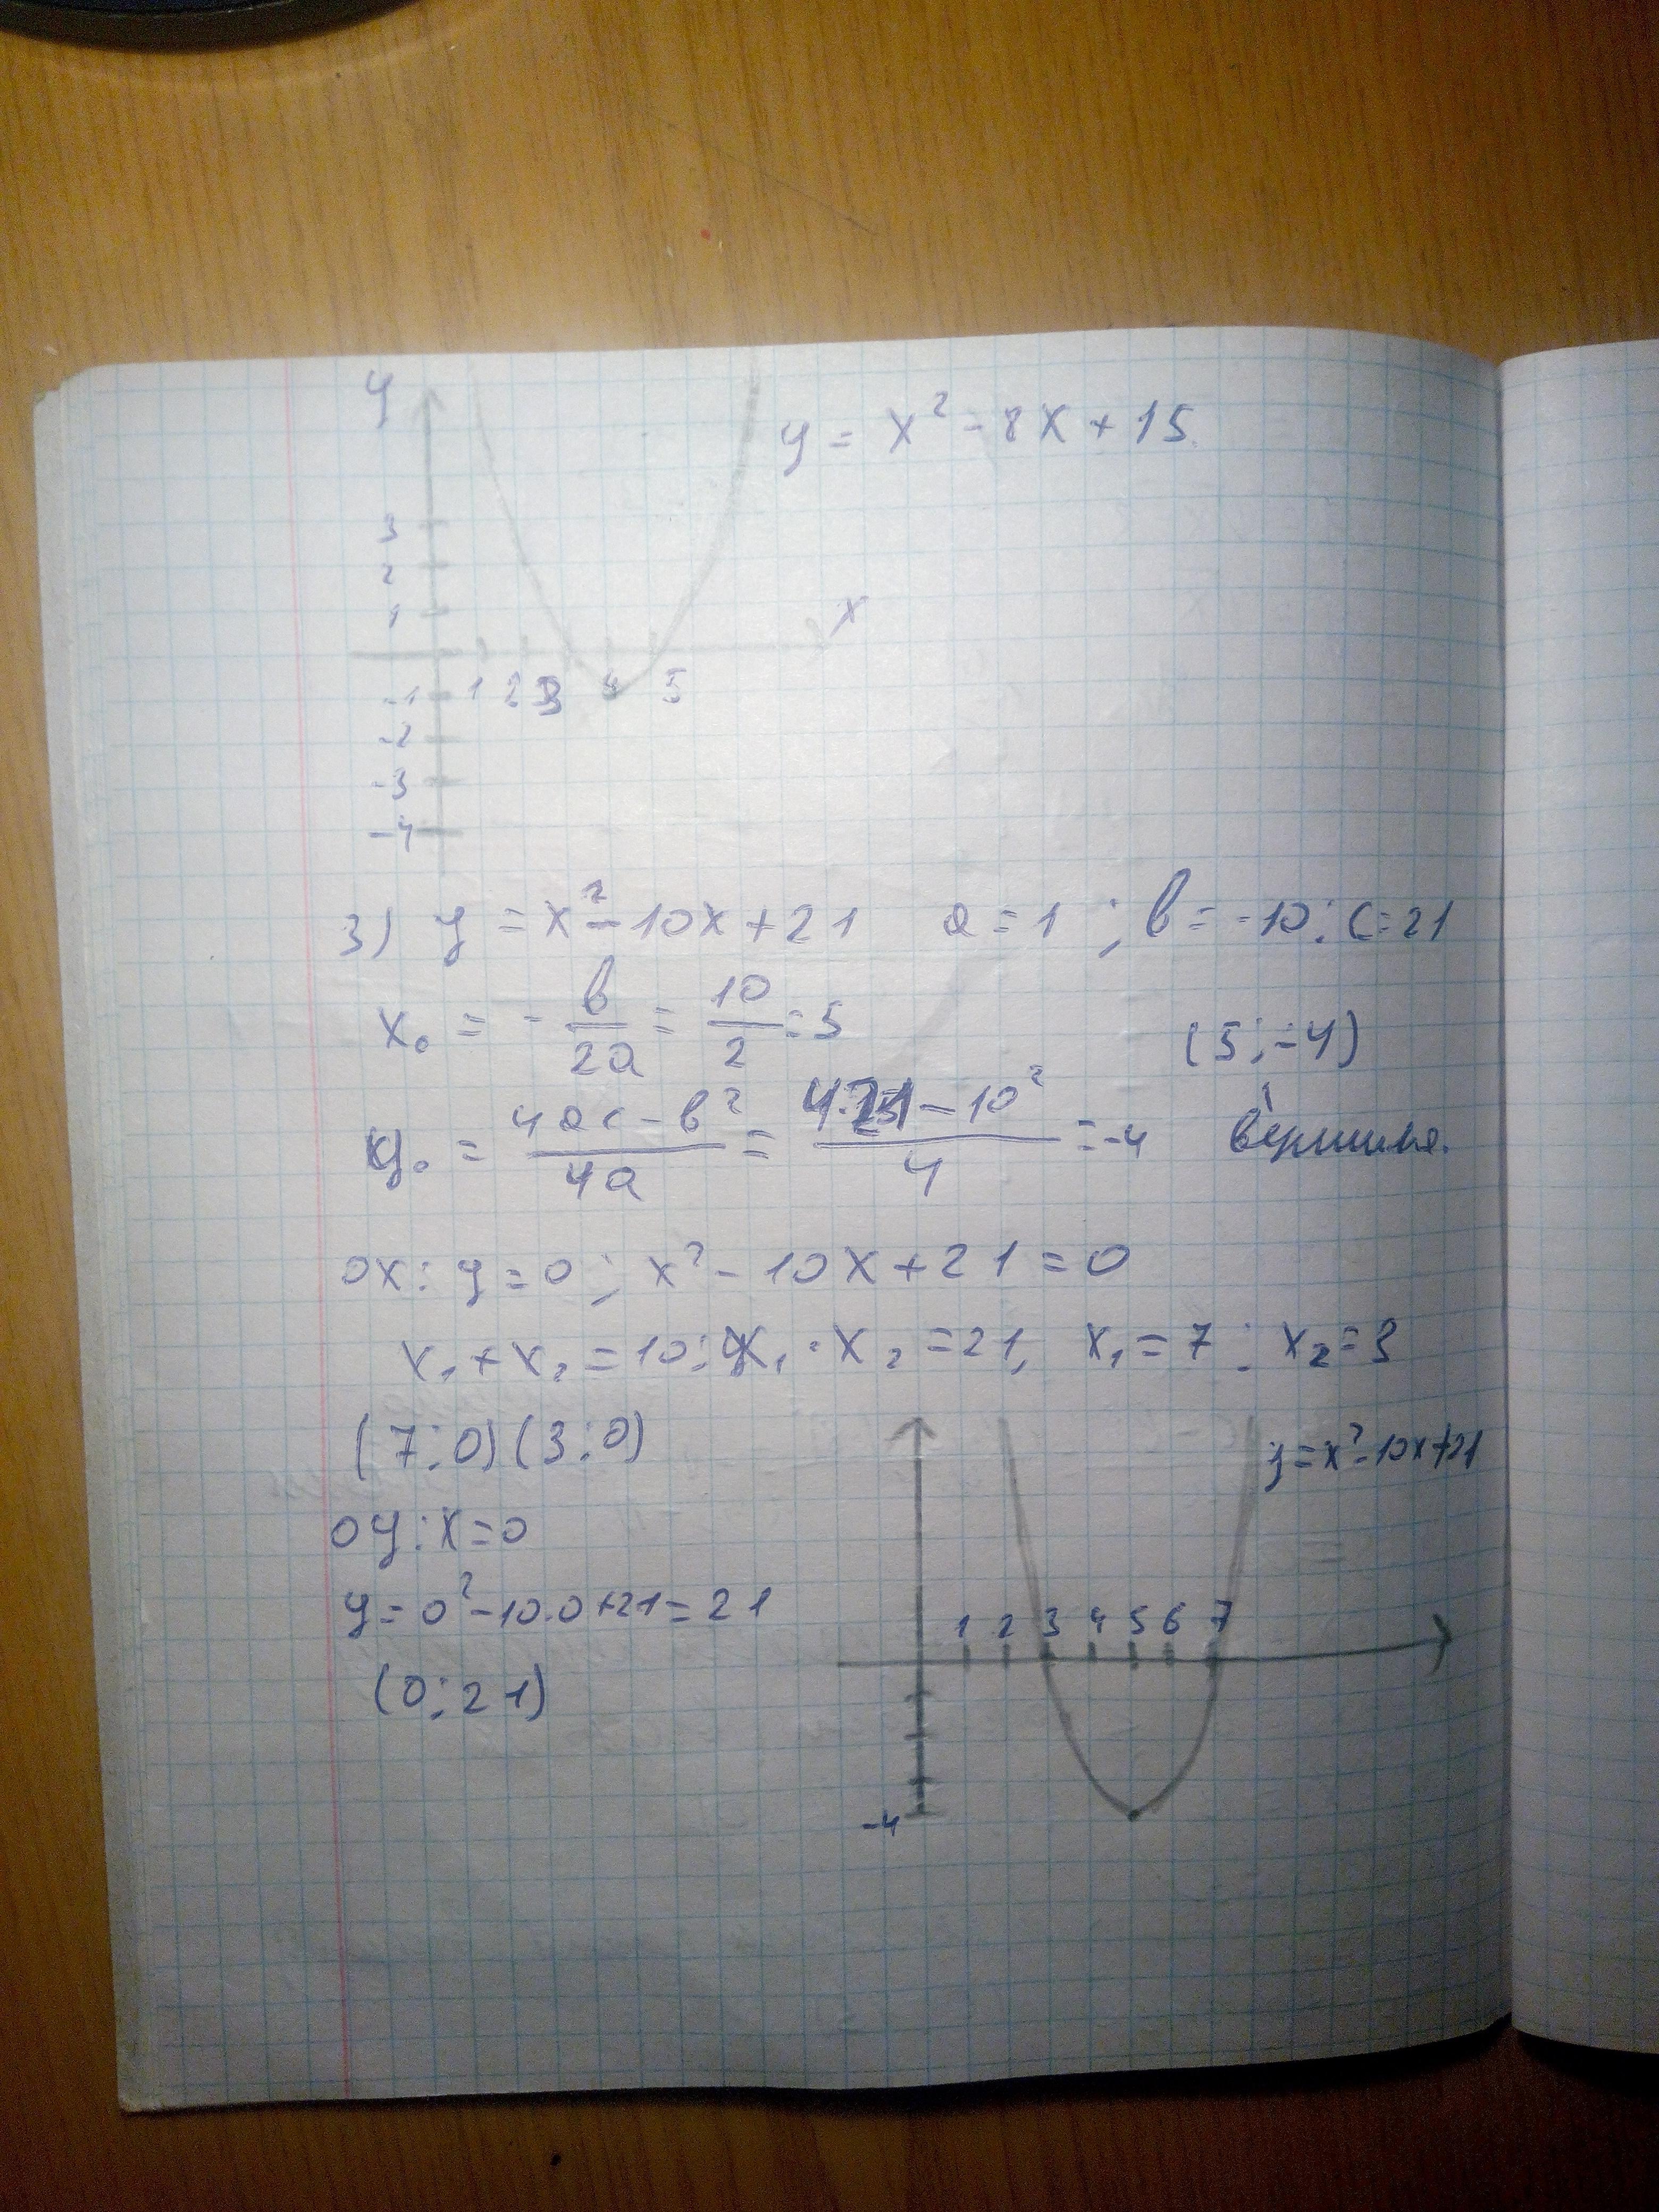 y
y = x² - 8x + 15
3
2
1
x
-1 1 2 3 4 5
-2
-3
-4
3) y = x² - 10x + 21 a = 1 ; b = -10 ; c = 21
x₀ = - b/2a = 10/2 = 5 (5 ; -4)
y₀ = (4ac - b²)/4a = (4·21 - 10²)/4 = -4 вершина.
ox: y = 0 ; x² - 10x + 21 = 0
x₁ + x₂ = 10 ; x₁ · x₂ = 21, x₁ = 7 ; x₂ = 3
(7 ; 0) (3 ; 0)
y = x² - 10x + 21
oy : x = 0
y = 0² - 10·0 + 21 = 21
1 2 3 4 5 6 7
(0 ; 21)
-4